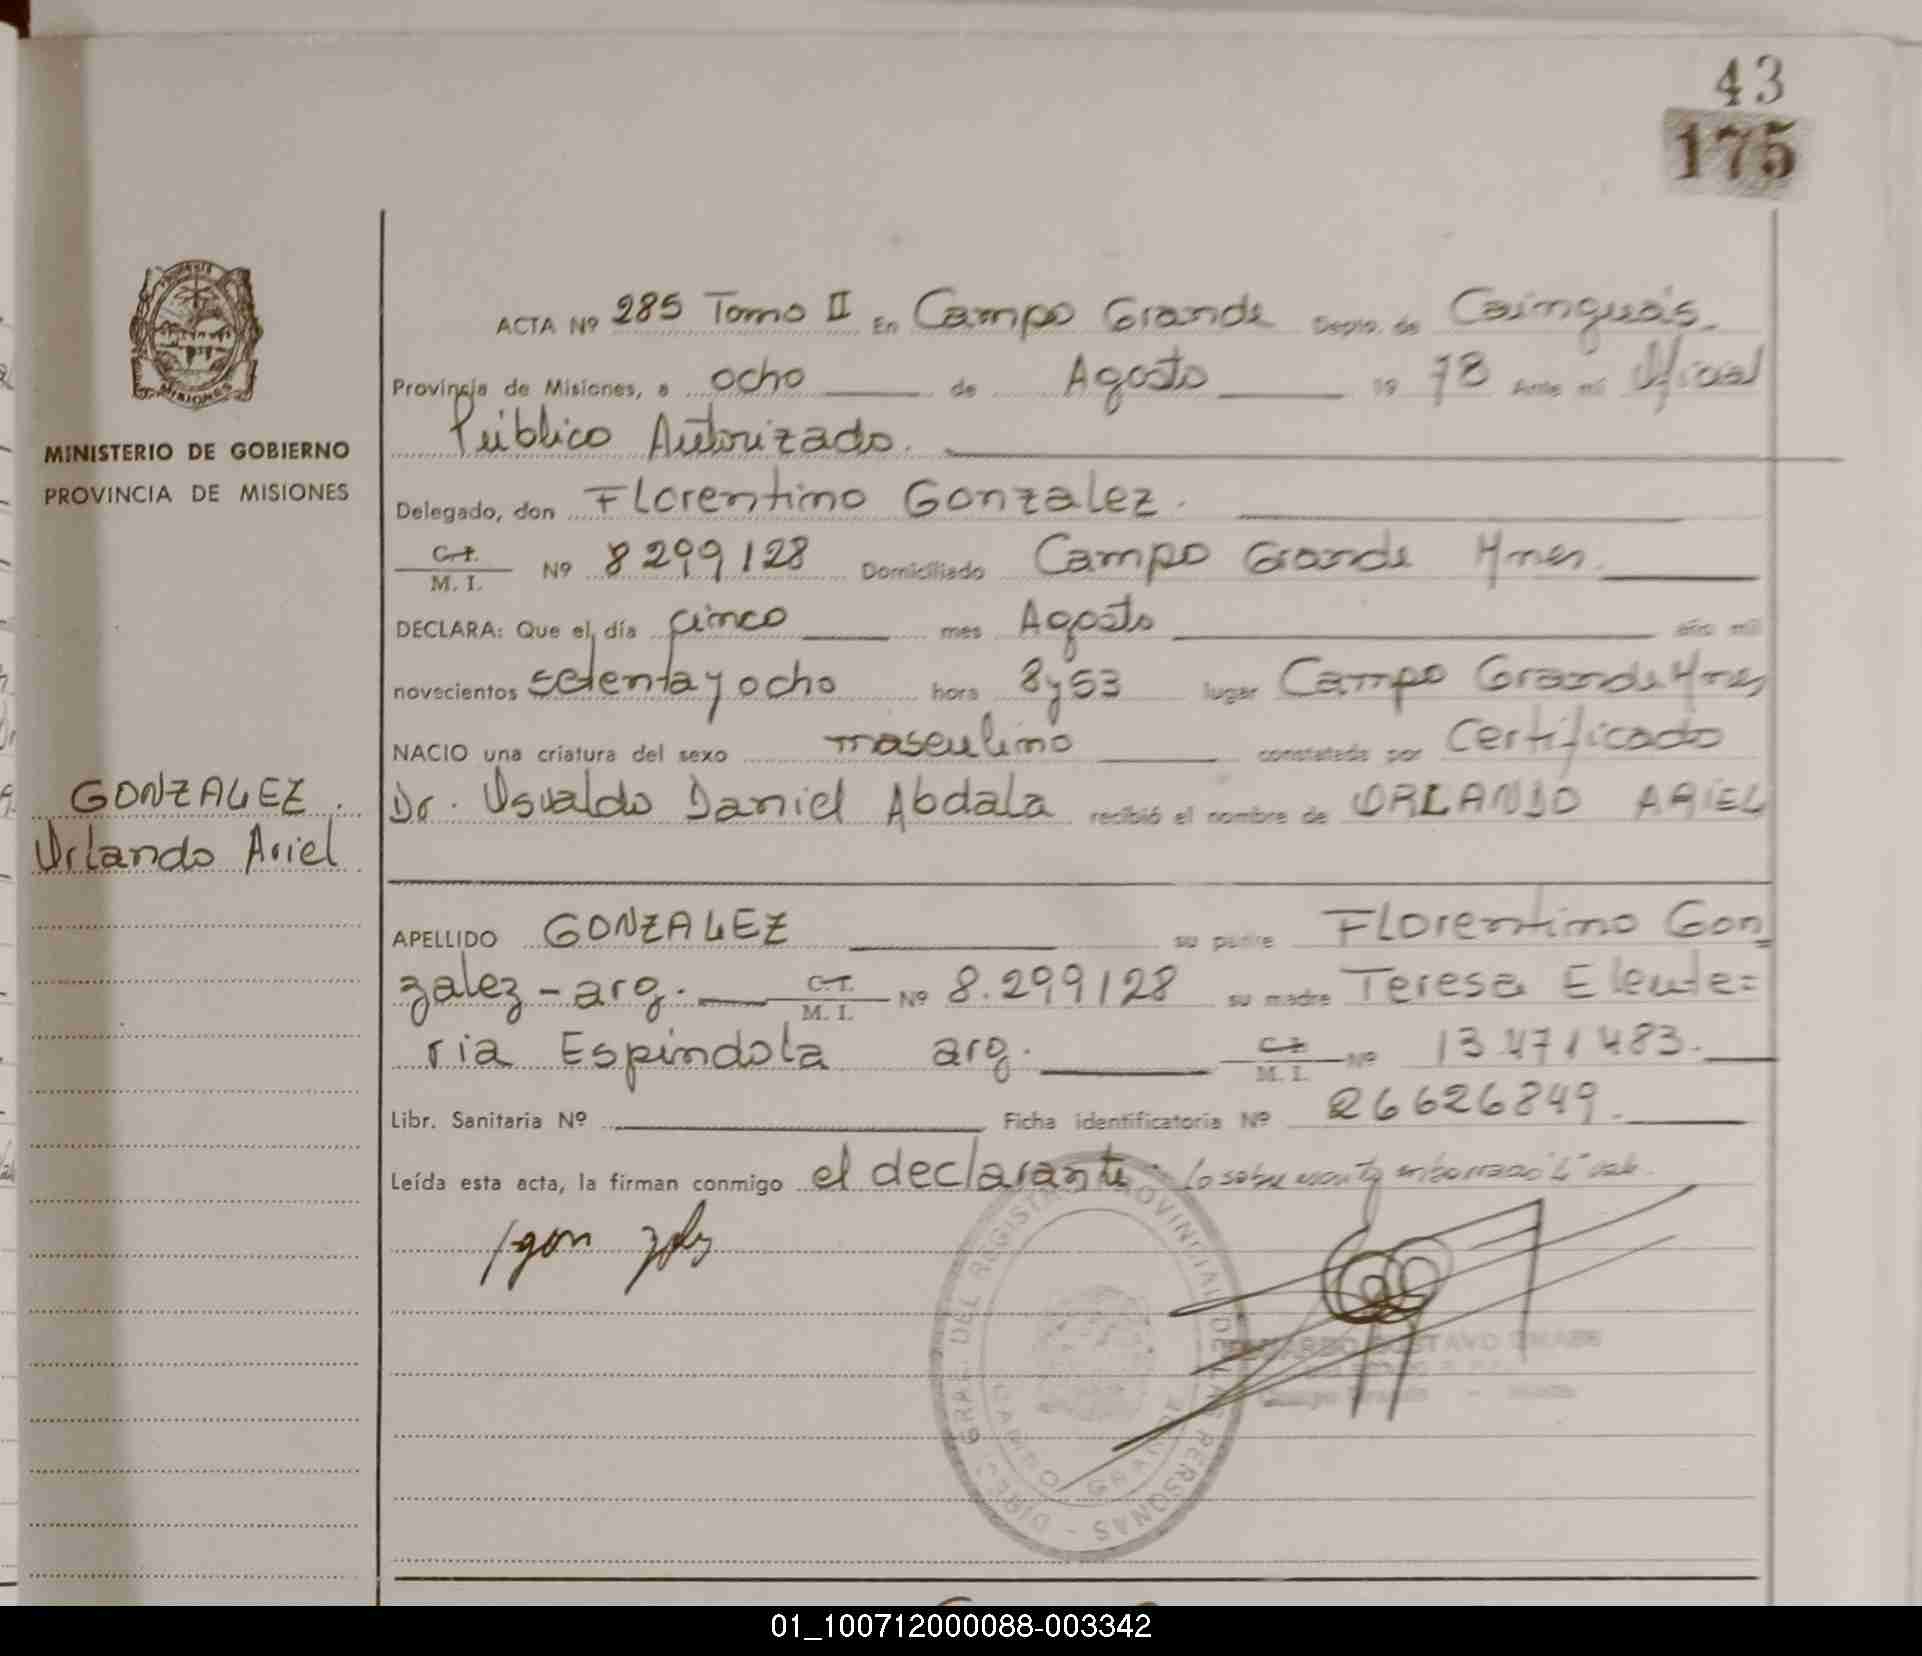 43
175
MINISTERIO DE GOBIERNO
PROVINCIA DE MISIONES
GONZALEZ.
Orlando Ariel
ACTA Nº 285 Tomo II En Campo Grande Depto. de Cainguás
Provincia de Misiones, a ocho de Agosto 19 78 Ante mí Oficial
Público Autorizado.
Delegado, don Florentino Gonzalez.
C.I. M. I. Nº 8299128 Domiciliado Campo Grande Mnes.
DECLARA: Que el día cinco mes Agosto año mil
novecientos setenta y ocho hora 8 y 53 lugar Campo Grande Mnes
NACIO una criatura del sexo masculino constatada por Certificado
Dr. Osvaldo Daniel Abdala recibió el nombre de ORLANDO ARIEL
APELLIDO GONZALEZ su padre Florentino Gon
zalez - arg. C.I. M. I. Nº 8.299128 su madre Teresa Eleute=
ria Espindola arg. C.I. M. I. Nº 13.471483.
Libr. Sanitaria Nº Ficha identificatoria Nº 26626849.
Leída esta acta, la firman conmigo el declarante. Lo sobre escrito "L" vale.
DIREC. GRAL. DEL REGISTRO PROVINCIAL DE LAS PERSONAS -
CAMPO GRANDE
GUSTAVO
01_100712000088-003342